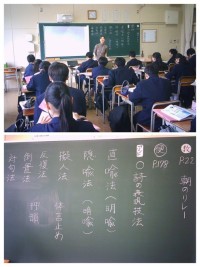 教 P.22 朝のリレー
P.178
詩の表現技法
直喩法（明喩）
隠喩法（暗喩）
擬人法 体言止め
反復法
倒置法 押韻
対句法